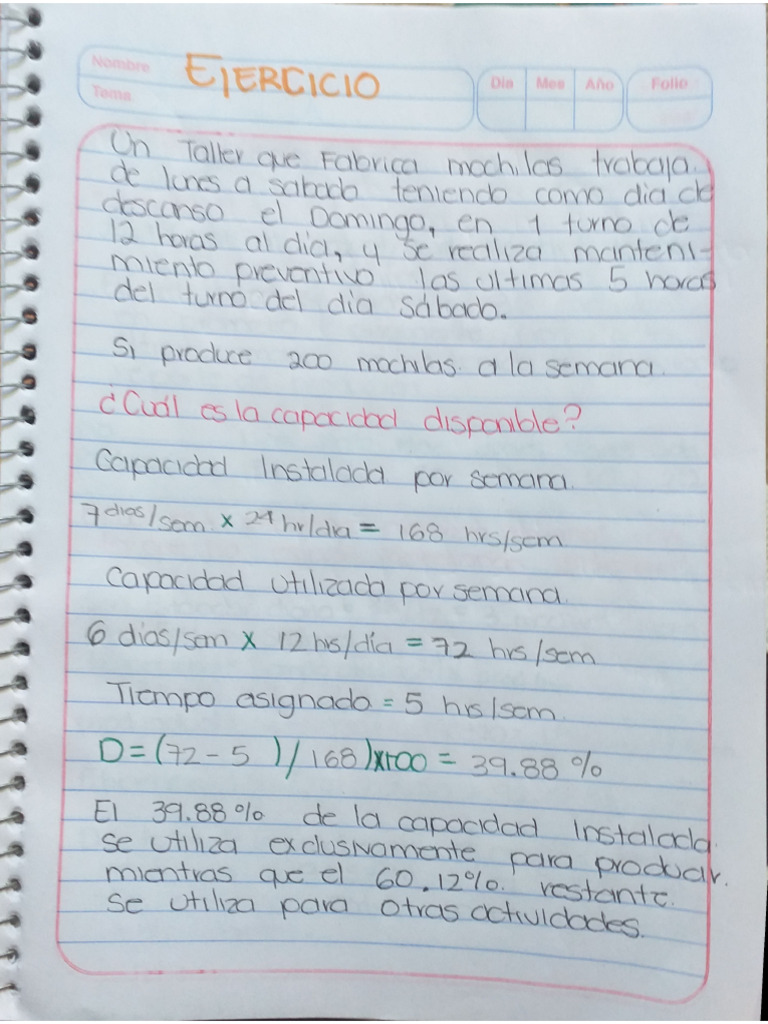 Nombre EJERCICIO Dia Mes Año Folio
Tema
Un Taller que Fabrica mochilas trabaja
de lunes a sabado teniendo como dia de
descanso el Domingo, en 1 turno de
12 horas al dia, y se realiza manteni-
miento preventivo las ultimas 5 horas
del turno del día Sábado.
Si produce 200 mochilas a la semana.
¿Cuál es la capacidad disponible?
Capacidad Instalada por semana.
7 dias/sem x 24 hr/dia = 168 hrs/sem
Capacidad utilizada por semana.
6 dias/sem x 12 hs/día = 72 hrs/sem
Tiempo asignado = 5 hrs/sem.
D=(72-5)/168)x100 = 39.88 %
El 39.88% de la capacidad Instalada.
se utiliza exclusivamente para producir.
mientras que el 60.12%. restante.
se utiliza para otras actividades.